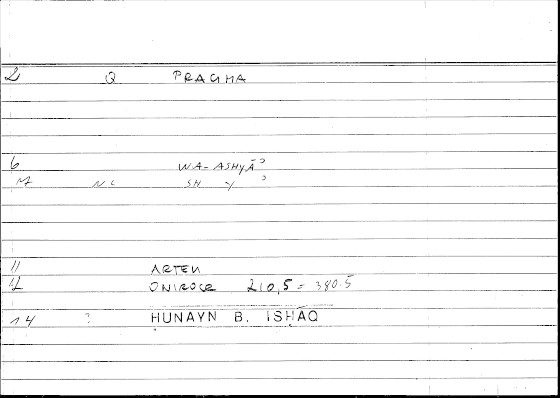 2 Q PRAGMA
6 WA-ASHYĀʾ
M NC SH Y ʾ
11 ARTEM
12 ONIROCR 210,5 = 380.5
14 ? ḤUNAYN B. ISḤĀQ